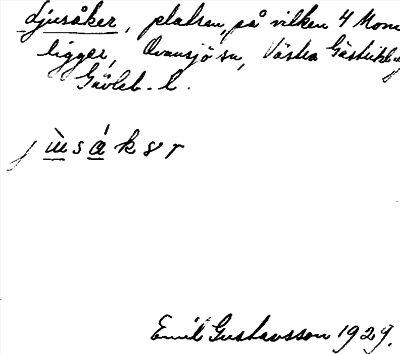 djusåker, platsen, på vilken 4 Mom
ligger, Ovansjö sn, Västra Gästrikl.
Gävleb. l.
j ùsákər
Emil Gustavsson 1929.